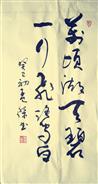 萬頃湖天碧
一行飛鷺白
癸巳初夏
書